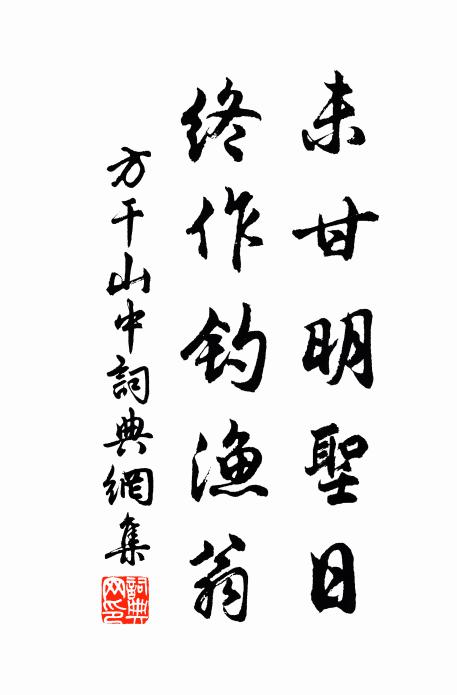 未甘明聖日
終作釣漁翁
方干山中詞典網集
詞典网印